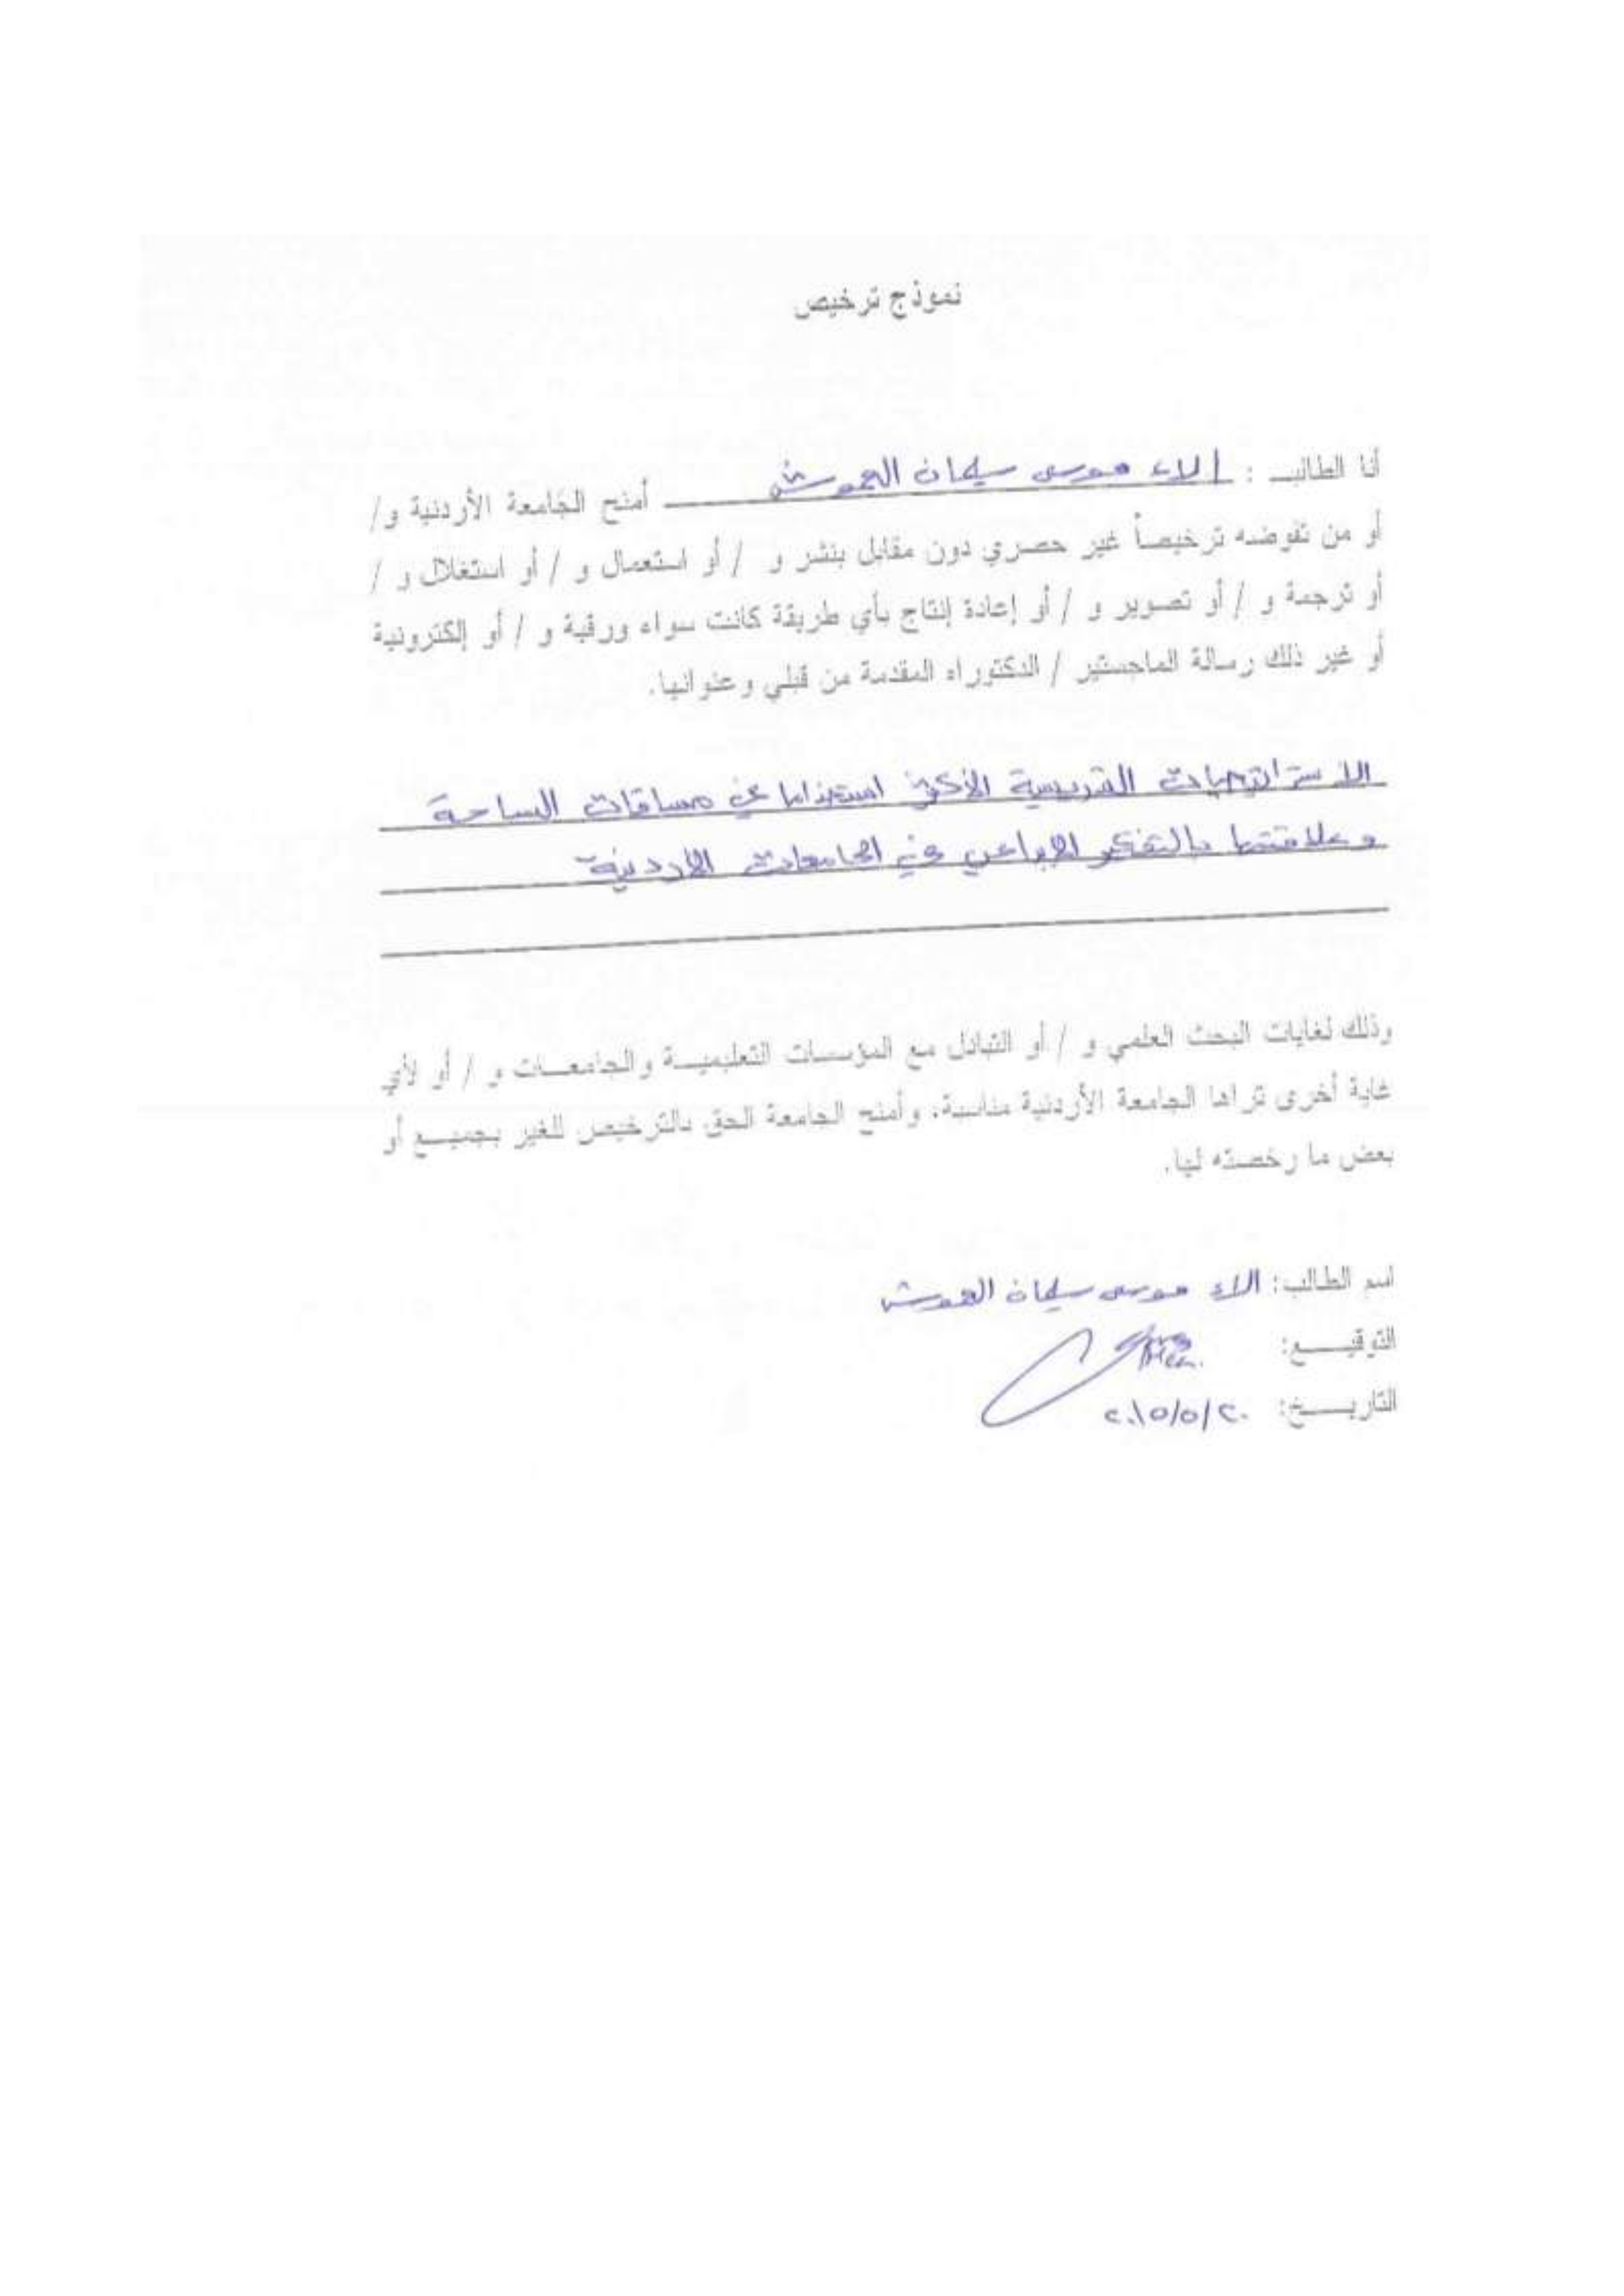 نموذج ترخيص
أنا الطالب : الاء موسى سليمان العموش أمنح الجامعة الأردنية و/
أو من تفوضه ترخيصاً غير حصري دون مقابل بنشر و / أو استعمال و / أو استغلال و /
أو ترجمة و / أو تصوير و / أو إعادة إنتاج بأي طريقة كانت سواء ورقية و / أو إلكترونية
أو غير ذلك رسالة الماجستير / الدكتوراه المقدمة من قبلي وعنوانها.
الاستراتيجيات التدريسية الأكثر استخداما في مساقات السباحة
وعلاقتها بالتفكير الابداعي في الجامعات الاردنية
وذلك لغايات البحث العلمي و / أو التبادل مع المؤسسات التعليمية والجامعات و / أو لأي
غاية أخرى تراها الجامعة الأردنية مناسبة، وأمنح الجامعة الحق بالترخيص للغير بجميع أو
بعض ما رخصته لها.
اسم الطالب: الاء موسى سليمان العموش
التوقيع:
التاريخ: ٢٠/٥/٢٠١٥